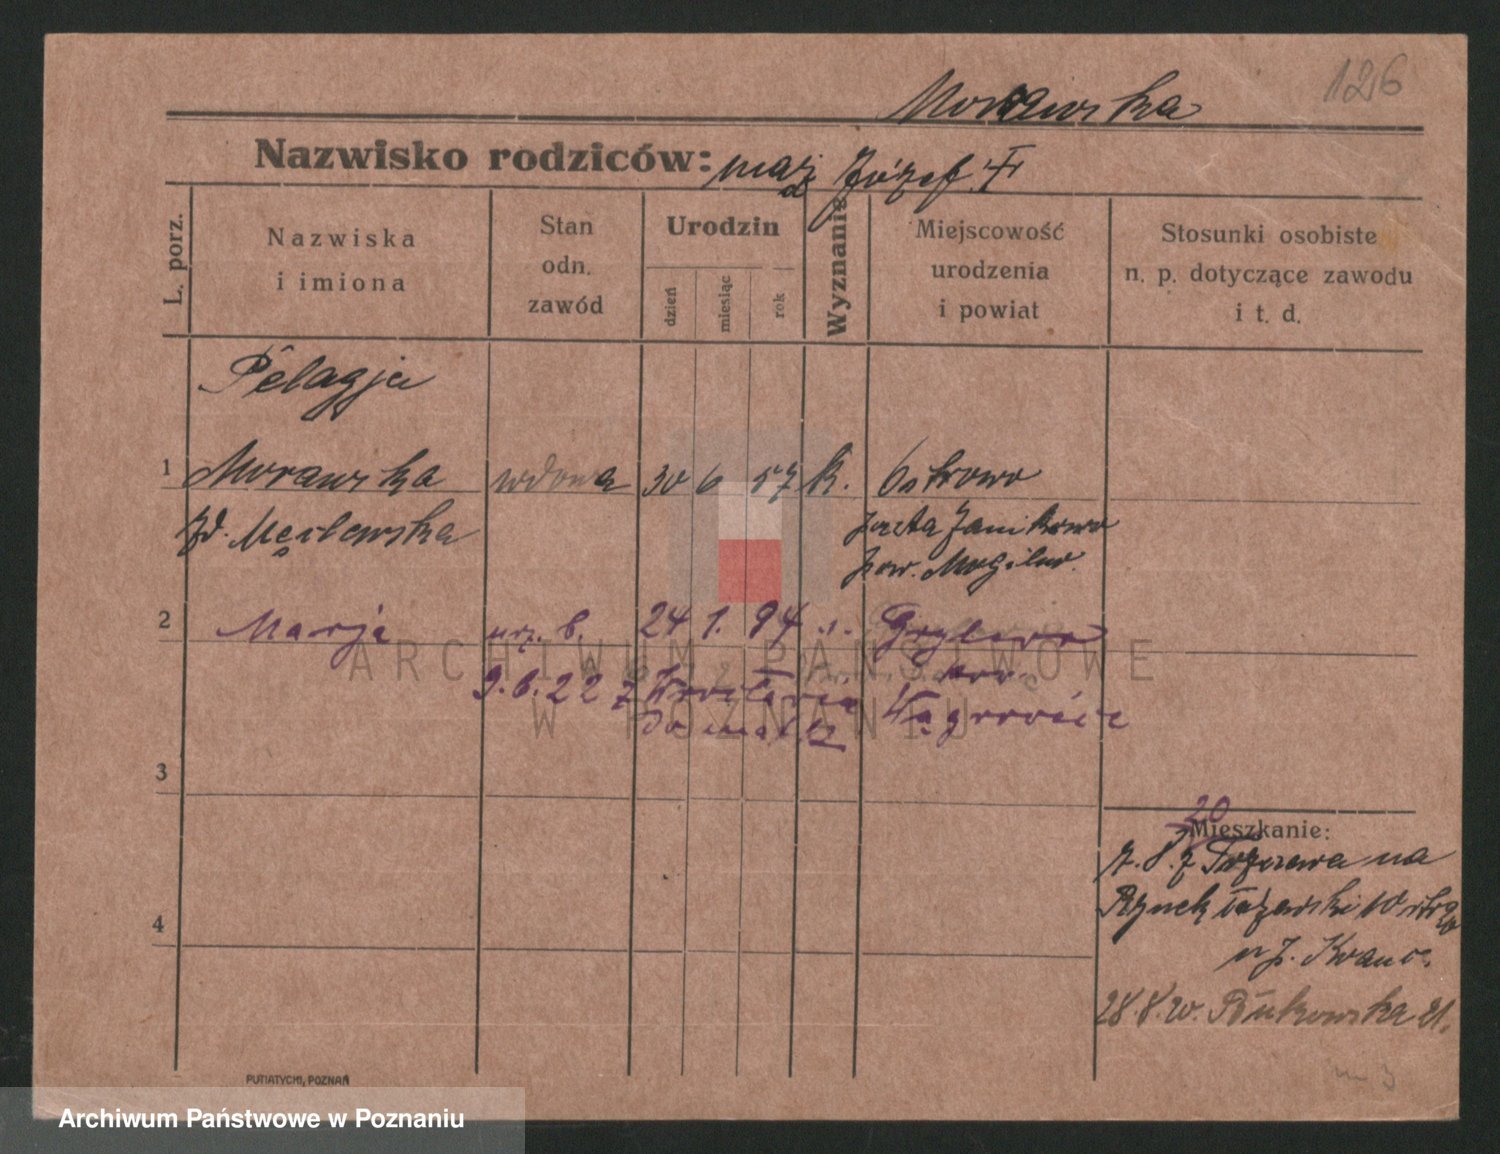 126
Morawska
Nazwisko rodziców: mąż Józef †
L. porz.
Nazwiska
i imiona
Stan
odn.
zawód
Urodzin
dzień
miesiąc
rok
Wyznanie
Miejscowość
urodzenia
i powiat
Stosunki osobiste
n. p. dotyczące zawodu
i t. d.
Pelagja
1 Morawska wdowa 30 6 57 k. Ostrowo
zd. Męclewska poczta Janikowo
pow. Mogilno.
2 Marja urz. b. 24 1. 94
ARCHIWUM PAŃSTWOWE
9.6.22 z Wrocławia pow.
W POZNANIU
Wągrowiec
3
20
Mieszkanie:
7.8. z na
Rynek Łazarski 10
4
u p.
28.8.20. Bukowska 21.
PUTIATYCKI, POZNAŃ
Archiwum Państwowe w Poznaniu